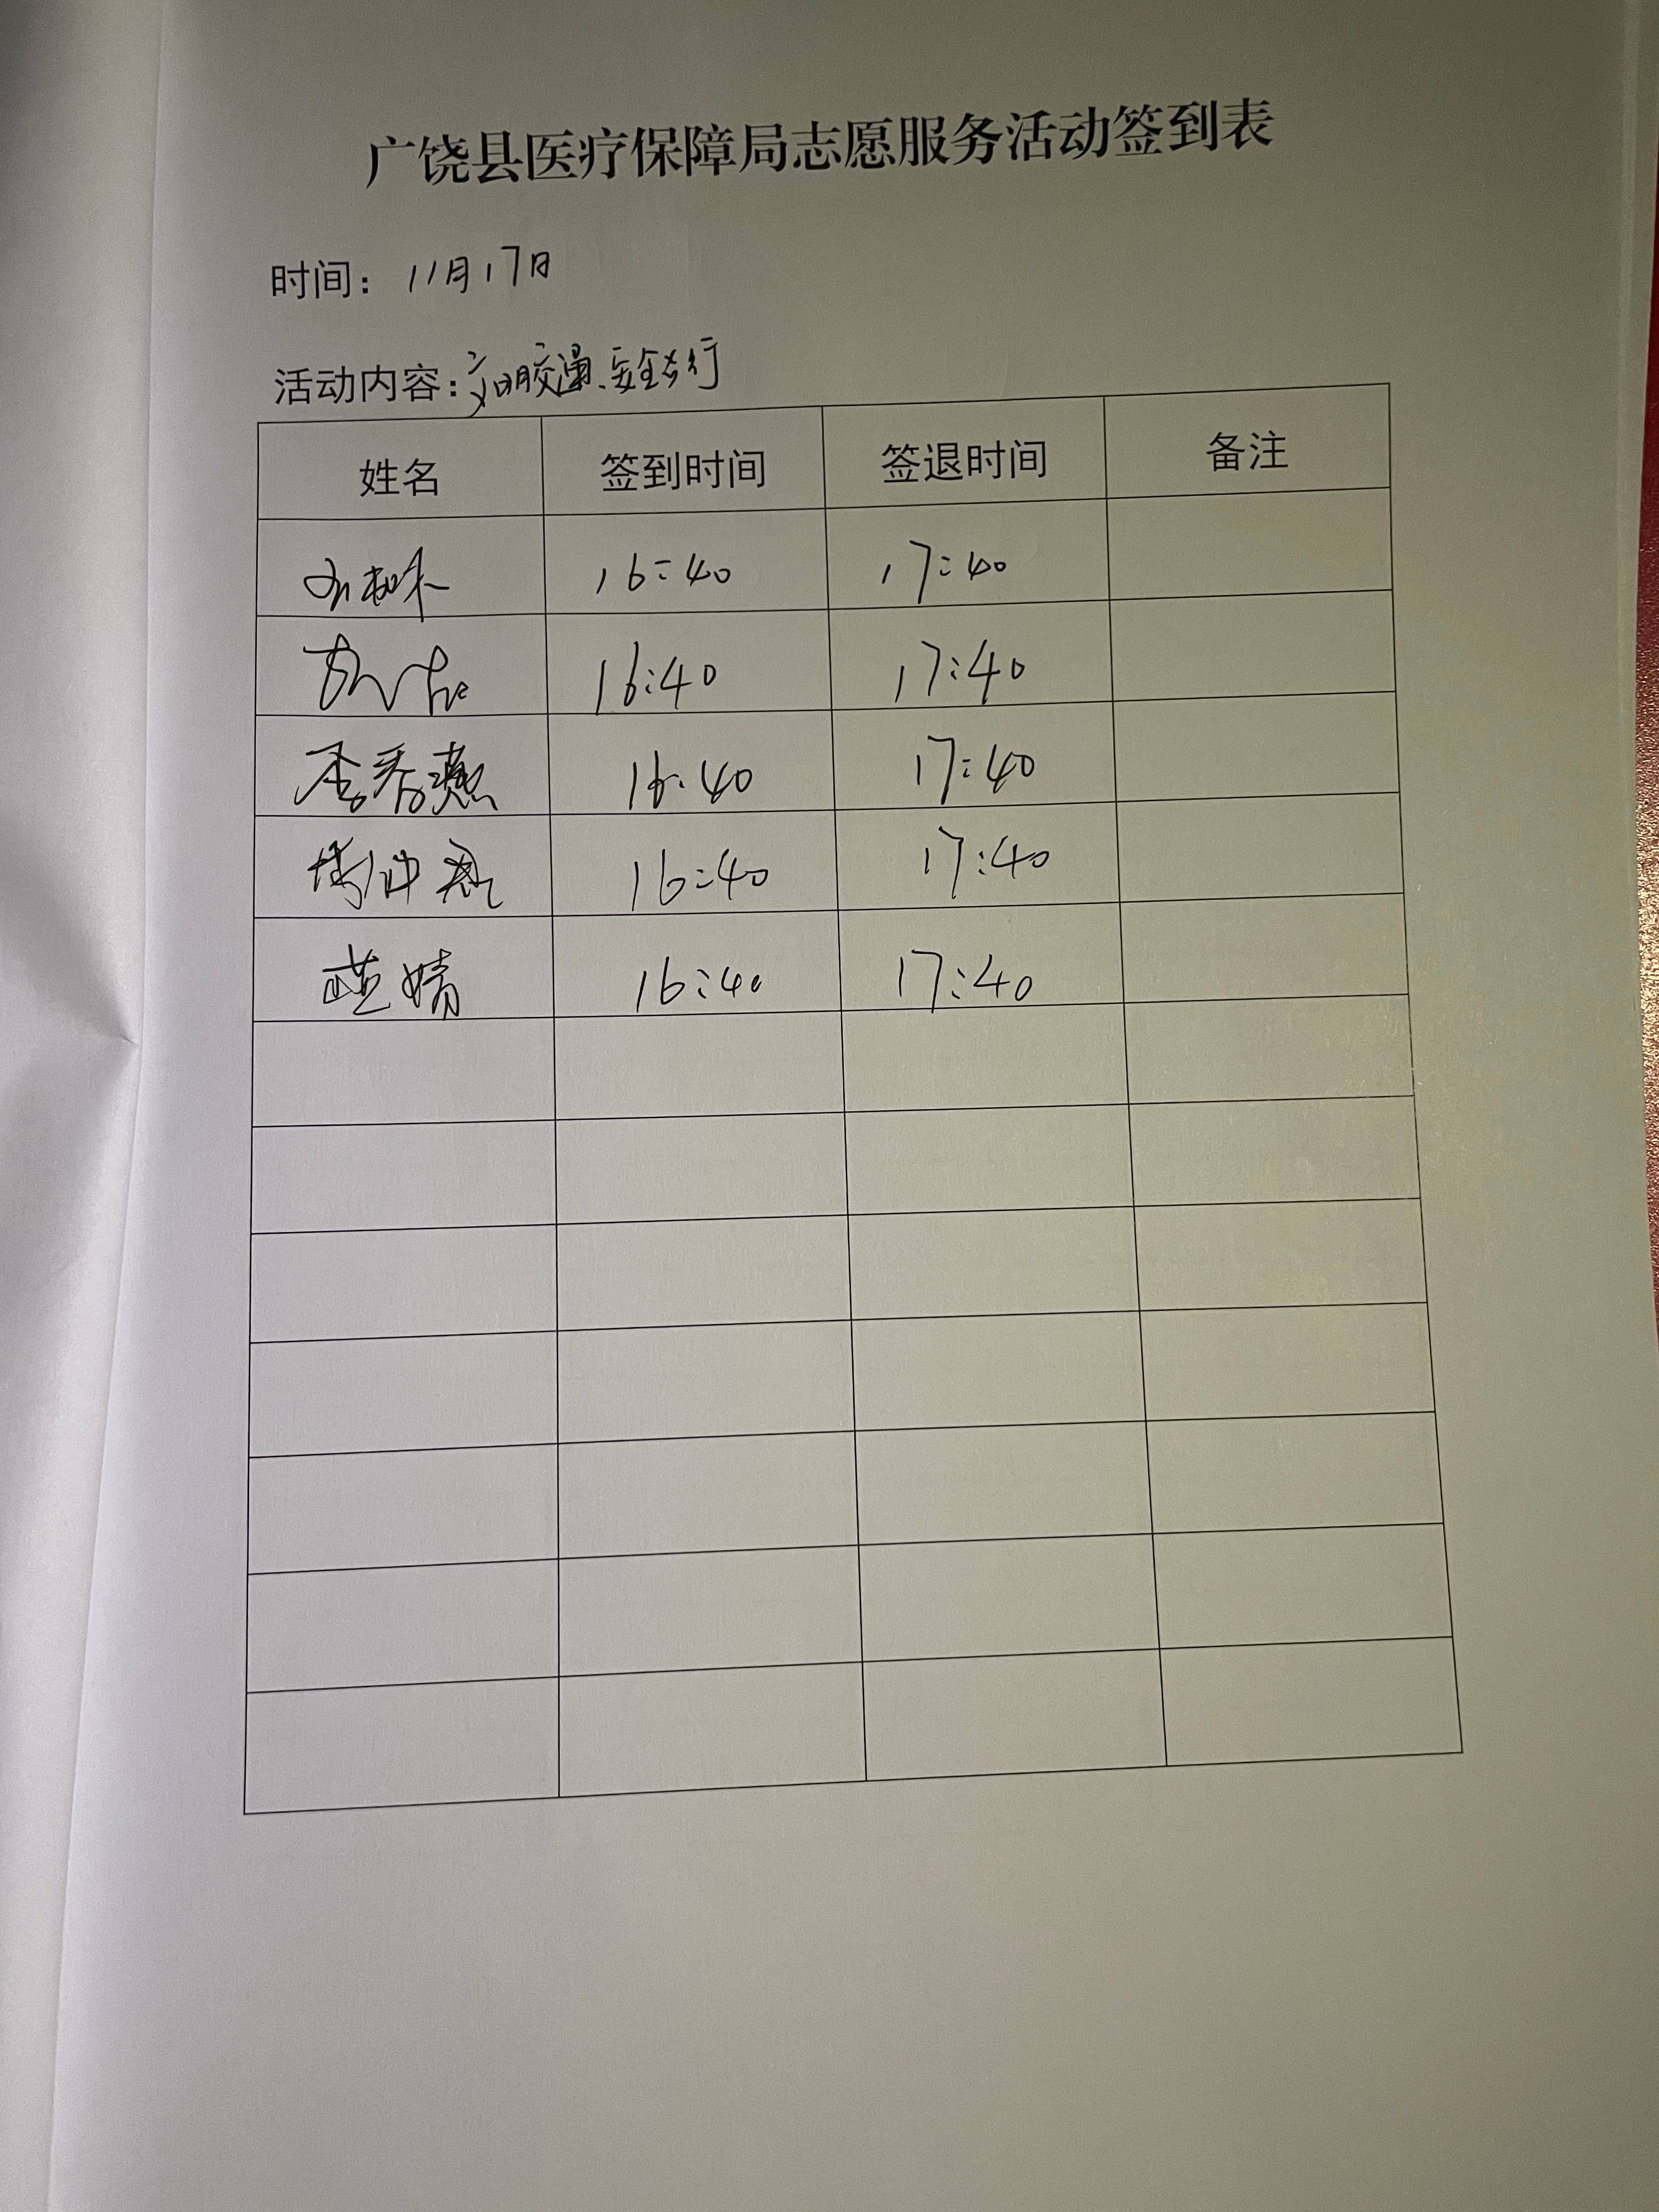 广饶县医疗保障局志愿服务活动签到表
时间：11月17日
活动内容：文明交通、安全出行
姓名 签到时间 签退时间 备注
16:40 17:40
16:40 17:40
李秀燕 16:40 17:40
16:40 17:40
婧 16:40 17:40